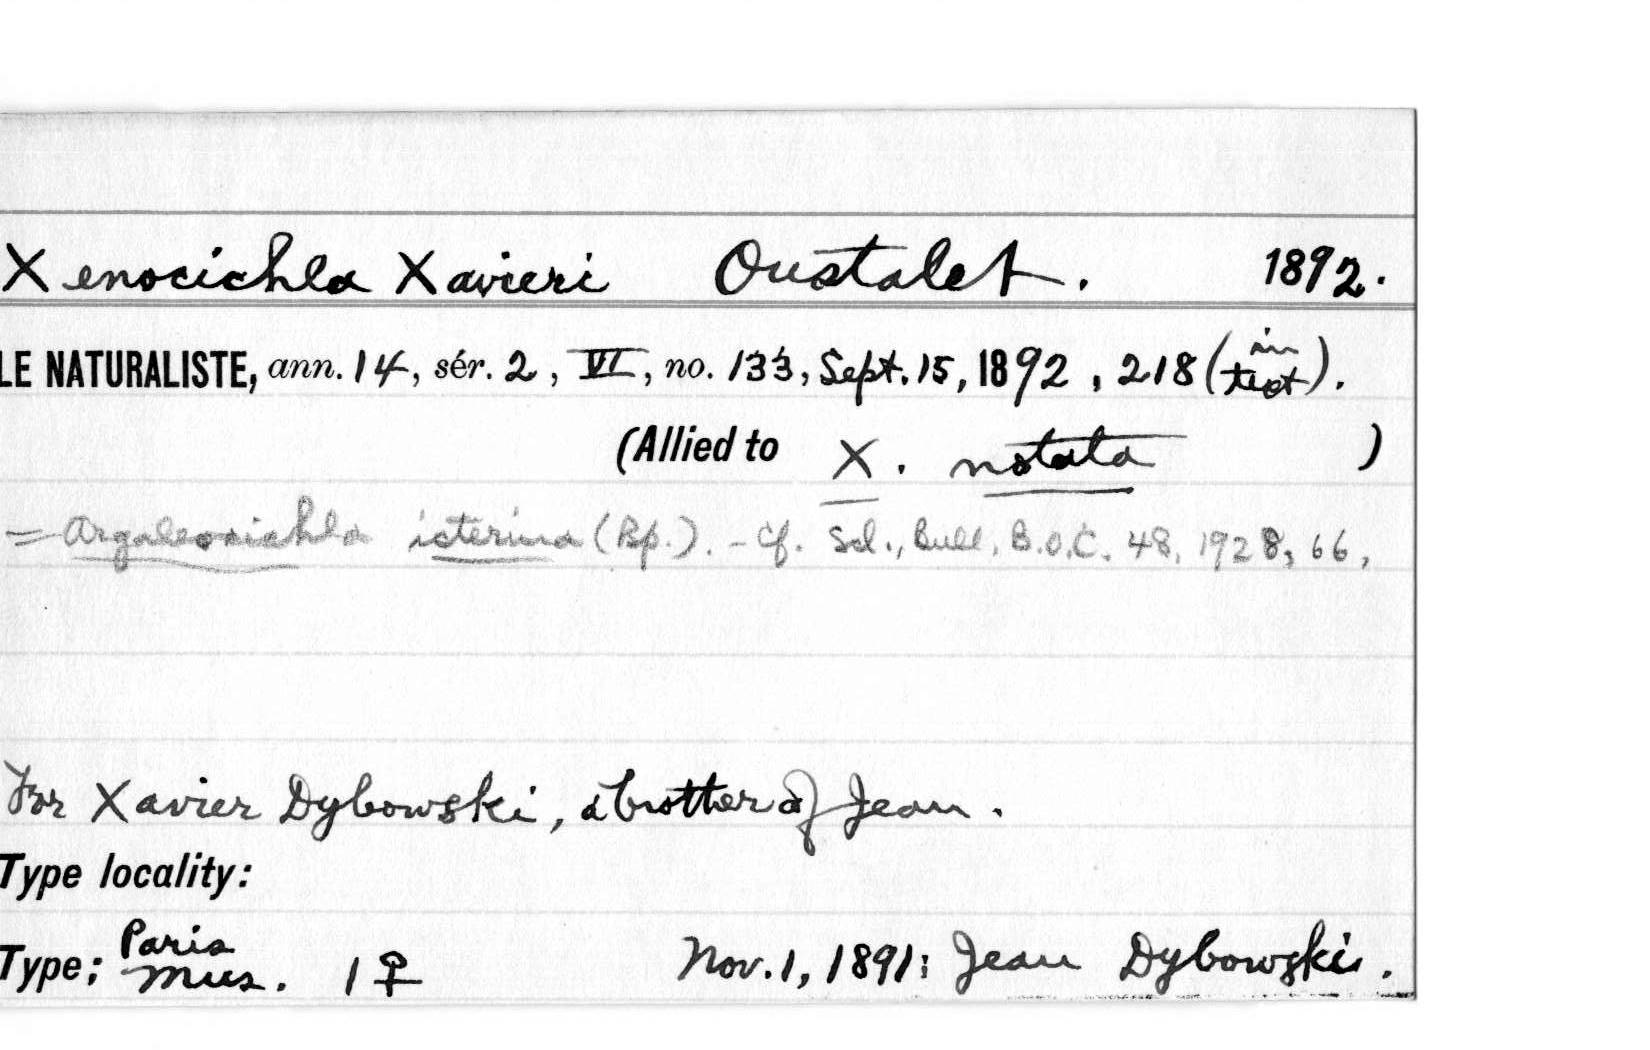 Xenocichla Xavieri Oustalet. 1892.
LE NATURALISTE, ann. 14, sér. 2, VI, no. 133, Sept. 15, 1892, 218 (in text).
(Allied to X. notata )
= Argaleocichla icterina (Bp.). - Cf. Scl., Bull. B.O.C. 48, 1928, 66,
For Xavier Dybowski, a brother of Jean.
Type locality:
Type; Paris Mus. 1 ♀ Nov. 1, 1891: Jean Dybowski.